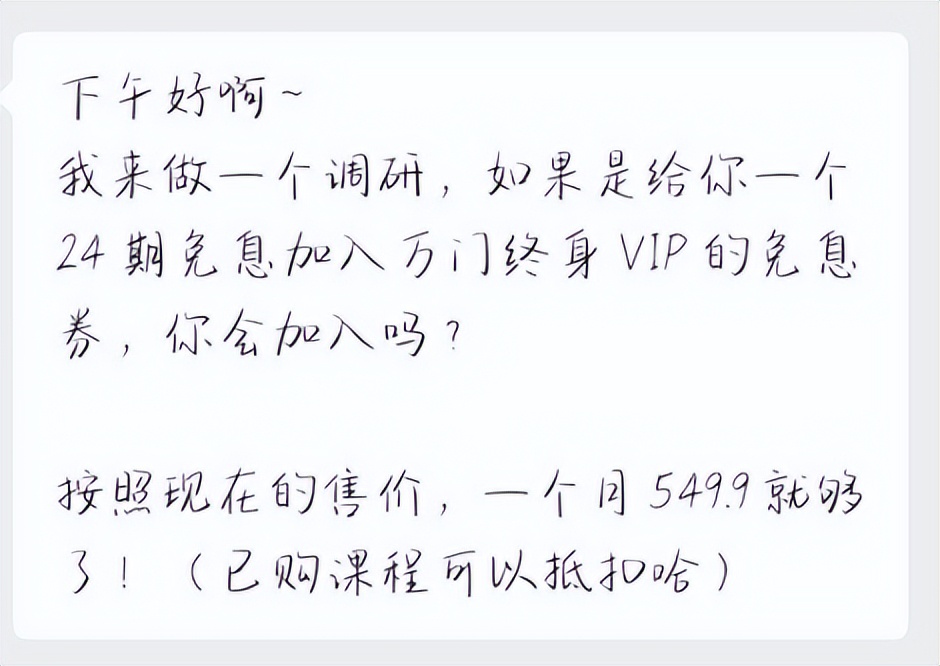 下午好啊~
我来做一个调研，如果是给你一个
24期免息加入万门终身VIP的免息
券，你会加入吗？
按照现在的售价，一个月549.9就够
了！（已购课程可以抵扣哈）